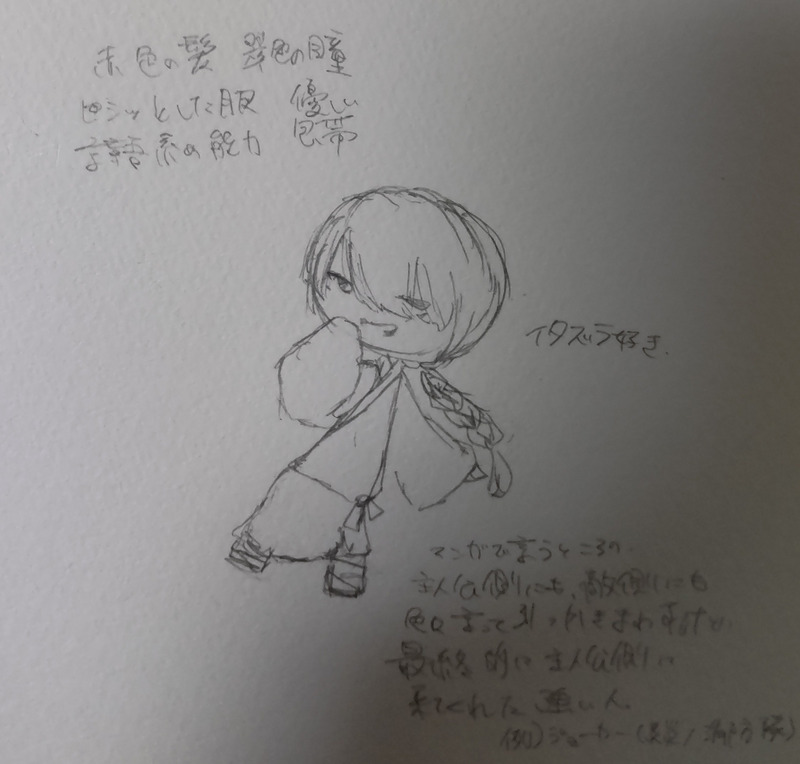 赤色の髪 翠色の瞳
ピシッとした服 優しい
言語系の能力 包帯
イタズラ好き。
マンガで言うところの
主人公側にも、敵側にも
色々言って引っかきまわすけど、
最終的に主人公側に
来てくれた強い人
例)ジョーカー(炎炎ノ消防隊)